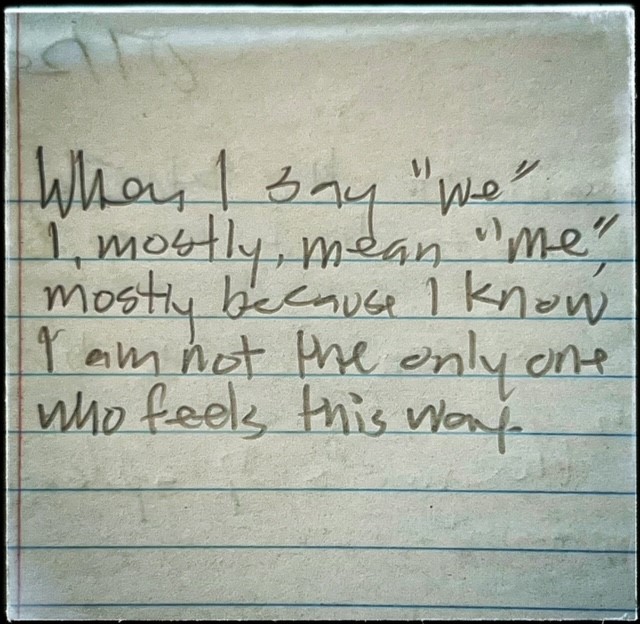 When I say "we"
I, mostly, mean "me",
mostly because I know
I am not the only one
who feels this way.